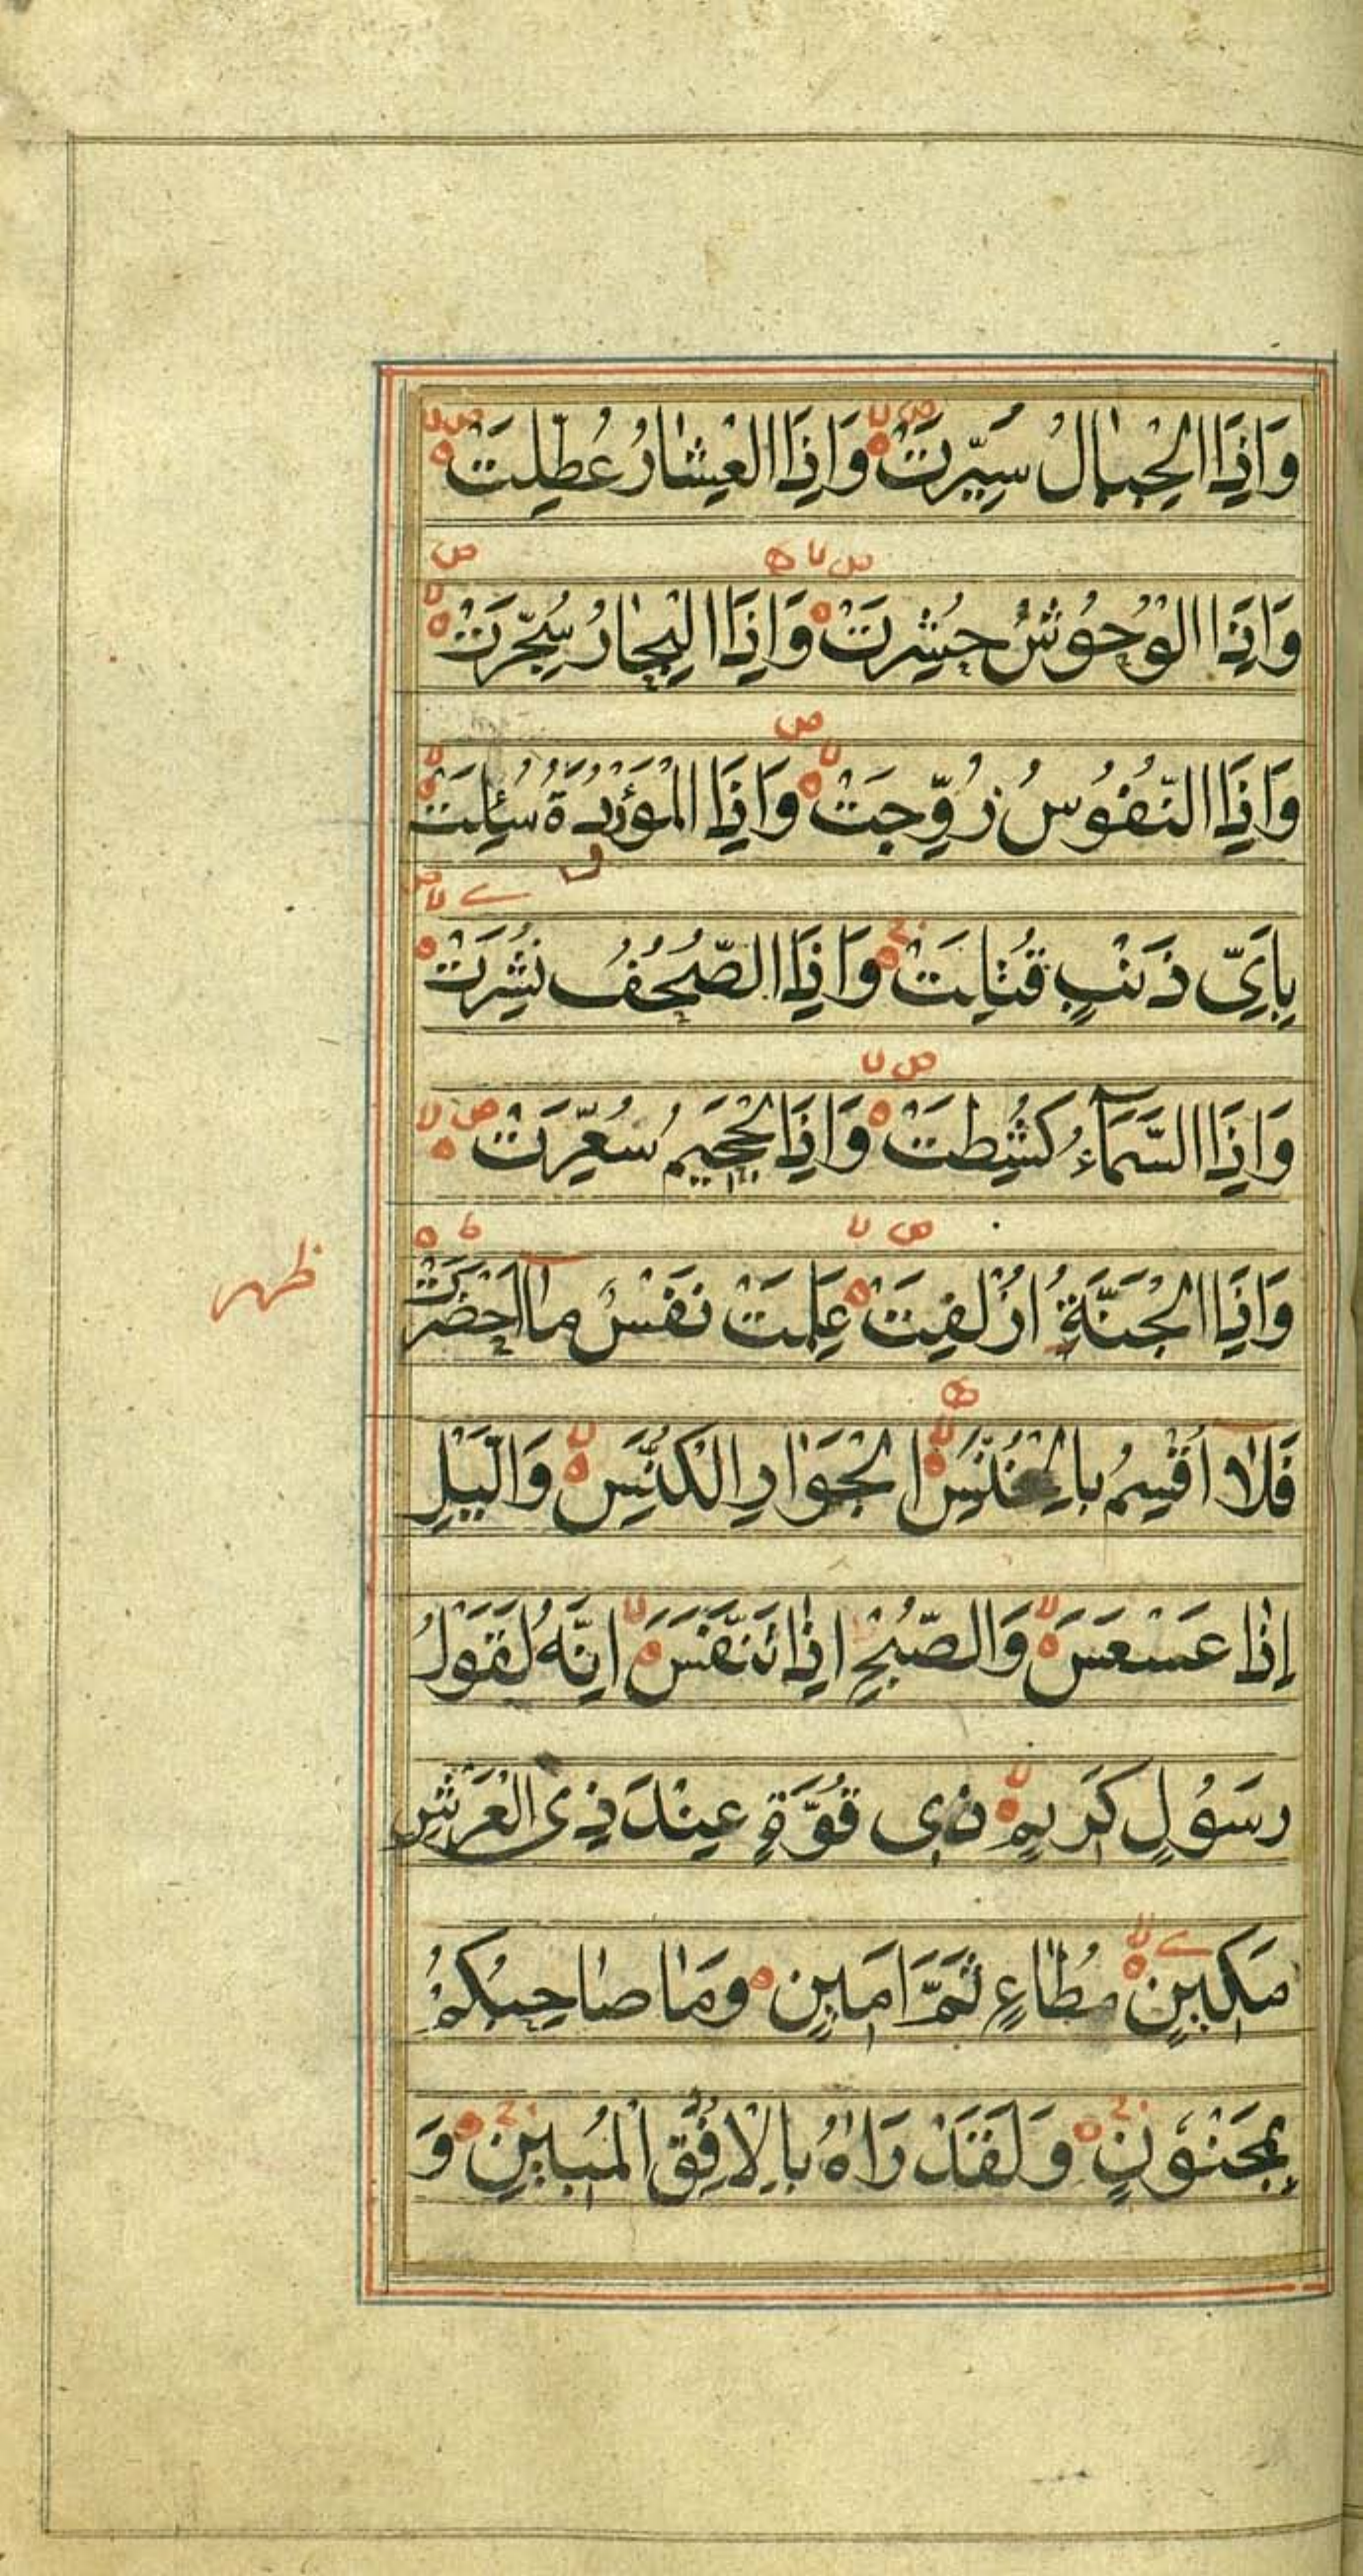 وَاِذَا الْجِبَالُ سُيِّرَتْ وَاِذَا الْعِشَارُ عُطِّلَتْ
وَاِذَا الْوُحُوْشُ حُشِرَتْ وَاِذَا الْبِحَارُ سُجِّرَتْ
وَاِذَا النُّفُوْسُ زُوِّجَتْ وَاِذَا الْمَوْؤُدَةُ سُئِلَتْ
بِاَيِّ ذَنْبٍ قُتِلَتْ وَاِذَا الصُّحُفُ نُشِرَتْ
وَاِذَا السَّمَآءُ كُشِطَتْ وَاِذَا الْجَحِيْمُ سُعِّرَتْ
وَاِذَا الْجَنَّةُ اُزْلِفَتْ عَلِمَتْ نَفْسٌ مَّا اَحْضَرَتْ
ظهر
فَلَا اُقْسِمُ بِالْخُنَّسِ الْجَوَارِ الْكُنَّسِ وَالَّيْلِ
اِذَا عَسْعَسَ وَالصُّبْحِ اِذَا تَنَفَّسَ اِنَّهُ لَقَوْلُ
رَسُوْلٍ كَرِيْمٍ ذِي قُوَّةٍ عِنْدَ ذِي الْعَرْشِ
مَكِيْنٍ مُطَاعٍ ثَمَّ اَمِيْنٍ وَمَا صَاحِبُكُمْ
بِمَجْنُوْنٍ وَلَقَدْ رَاٰهُ بِالْاُفُقِ الْمُبِيْنِ وَ